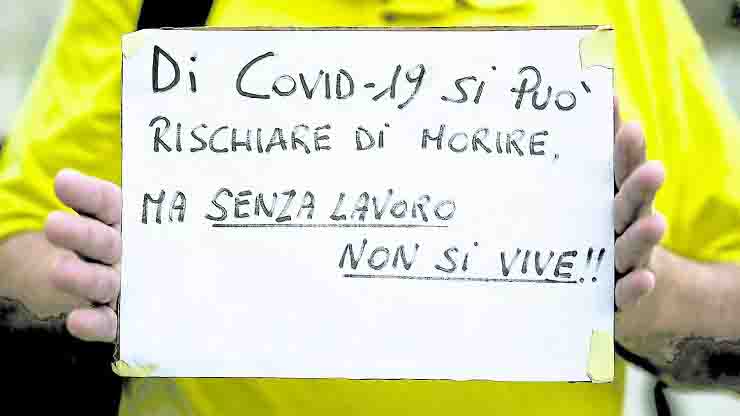 Di COVID-19 Si PUO'
RISCHIARE Di MORIRE,
MA SENZA LAVORO
NON Si VIVE!!